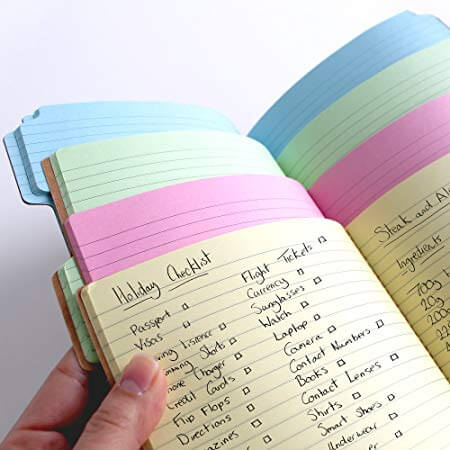 Holiday Checklist
Passport
Visas
Licence
Shorts
Charger
Credit Cards
Flip Flops
Directions
Flight Tickets
Currency
Sunglasses
Watch
Laptop
Camera
Contact Numbers
Books
Contact Lenses
Shirts
Smart Shoes
Underwear
Steak and
Ingredients
700g
20g